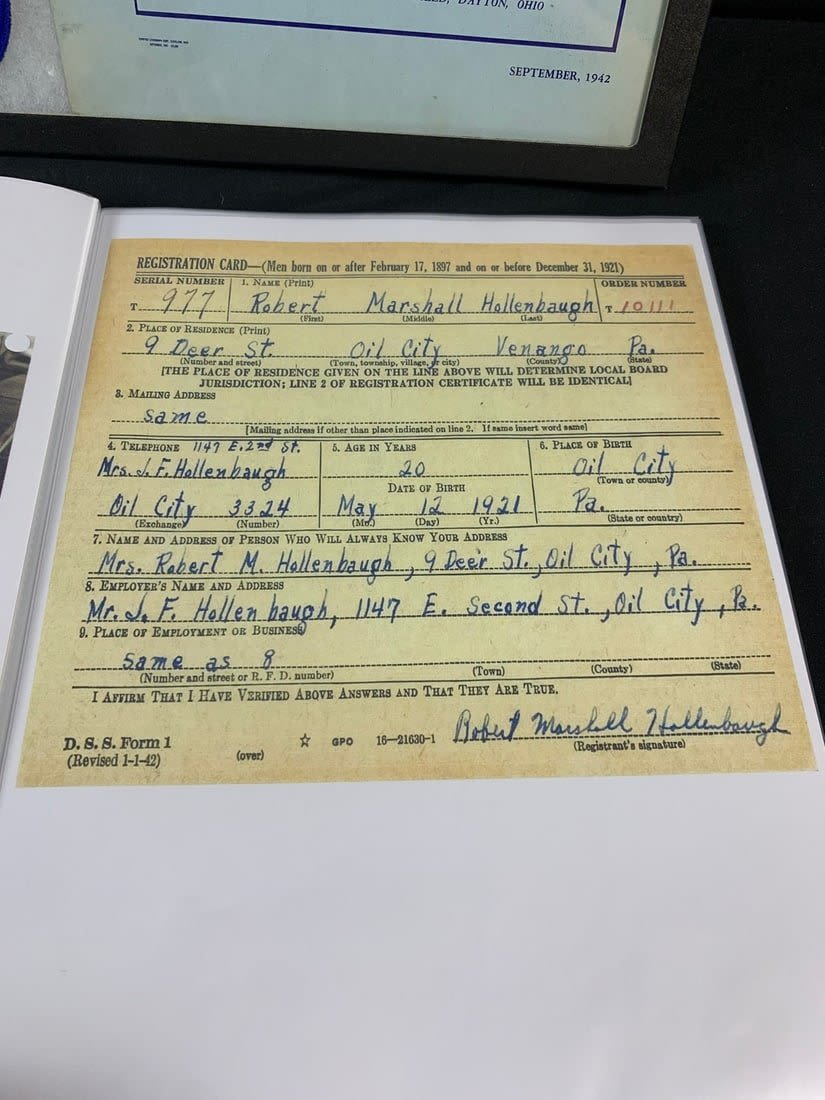 DAYTON, OHIO
SEPTEMBER, 1942
REGISTRATION CARD—(Men born on or after February 17, 1897 and on or before December 31, 1921)
SERIAL NUMBER 1. NAME (Print) ORDER NUMBER
T 977 Robert Marshall Hollenbaugh T 10111
(First) (Middle) (Last)
2. PLACE OF RESIDENCE (Print)
9 Deer St. Oil City Venango Pa.
(Number and street) (Town, township, village, or city) (County) (State)
[THE PLACE OF RESIDENCE GIVEN ON THE LINE ABOVE WILL DETERMINE LOCAL BOARD
JURISDICTION; LINE 2 OF REGISTRATION CERTIFICATE WILL BE IDENTICAL]
3. MAILING ADDRESS
same
[Mailing address if other than place indicated on line 2. If same insert word same]
4. TELEPHONE 1147 E. 2nd St. 5. AGE IN YEARS 6. PLACE OF BIRTH
Mrs. J. F. Hollenbaugh 20 Oil City
DATE OF BIRTH (Town or county)
Oil City 3324 May 12 1921 Pa.
(Exchange) (Number) (Mo.) (Day) (Yr.) (State or country)
7. NAME AND ADDRESS OF PERSON WHO WILL ALWAYS KNOW YOUR ADDRESS
Mrs. Robert M. Hollenbaugh, 9 Deer St., Oil City, Pa.
8. EMPLOYER'S NAME AND ADDRESS
Mr. J. F. Hollenbaugh, 1147 E. Second St., Oil City, Pa.
9. PLACE OF EMPLOYMENT OR BUSINESS
same as 8
(Number and street or R. F. D. number) (Town) (County) (State)
I AFFIRM THAT I HAVE VERIFIED ABOVE ANSWERS AND THAT THEY ARE TRUE.
Robert Marshall Hollenbaugh
D. S. S. Form 1 ☆ GPO 16—21630-1 (Registrant's signature)
(Revised 1-1-42) (over)